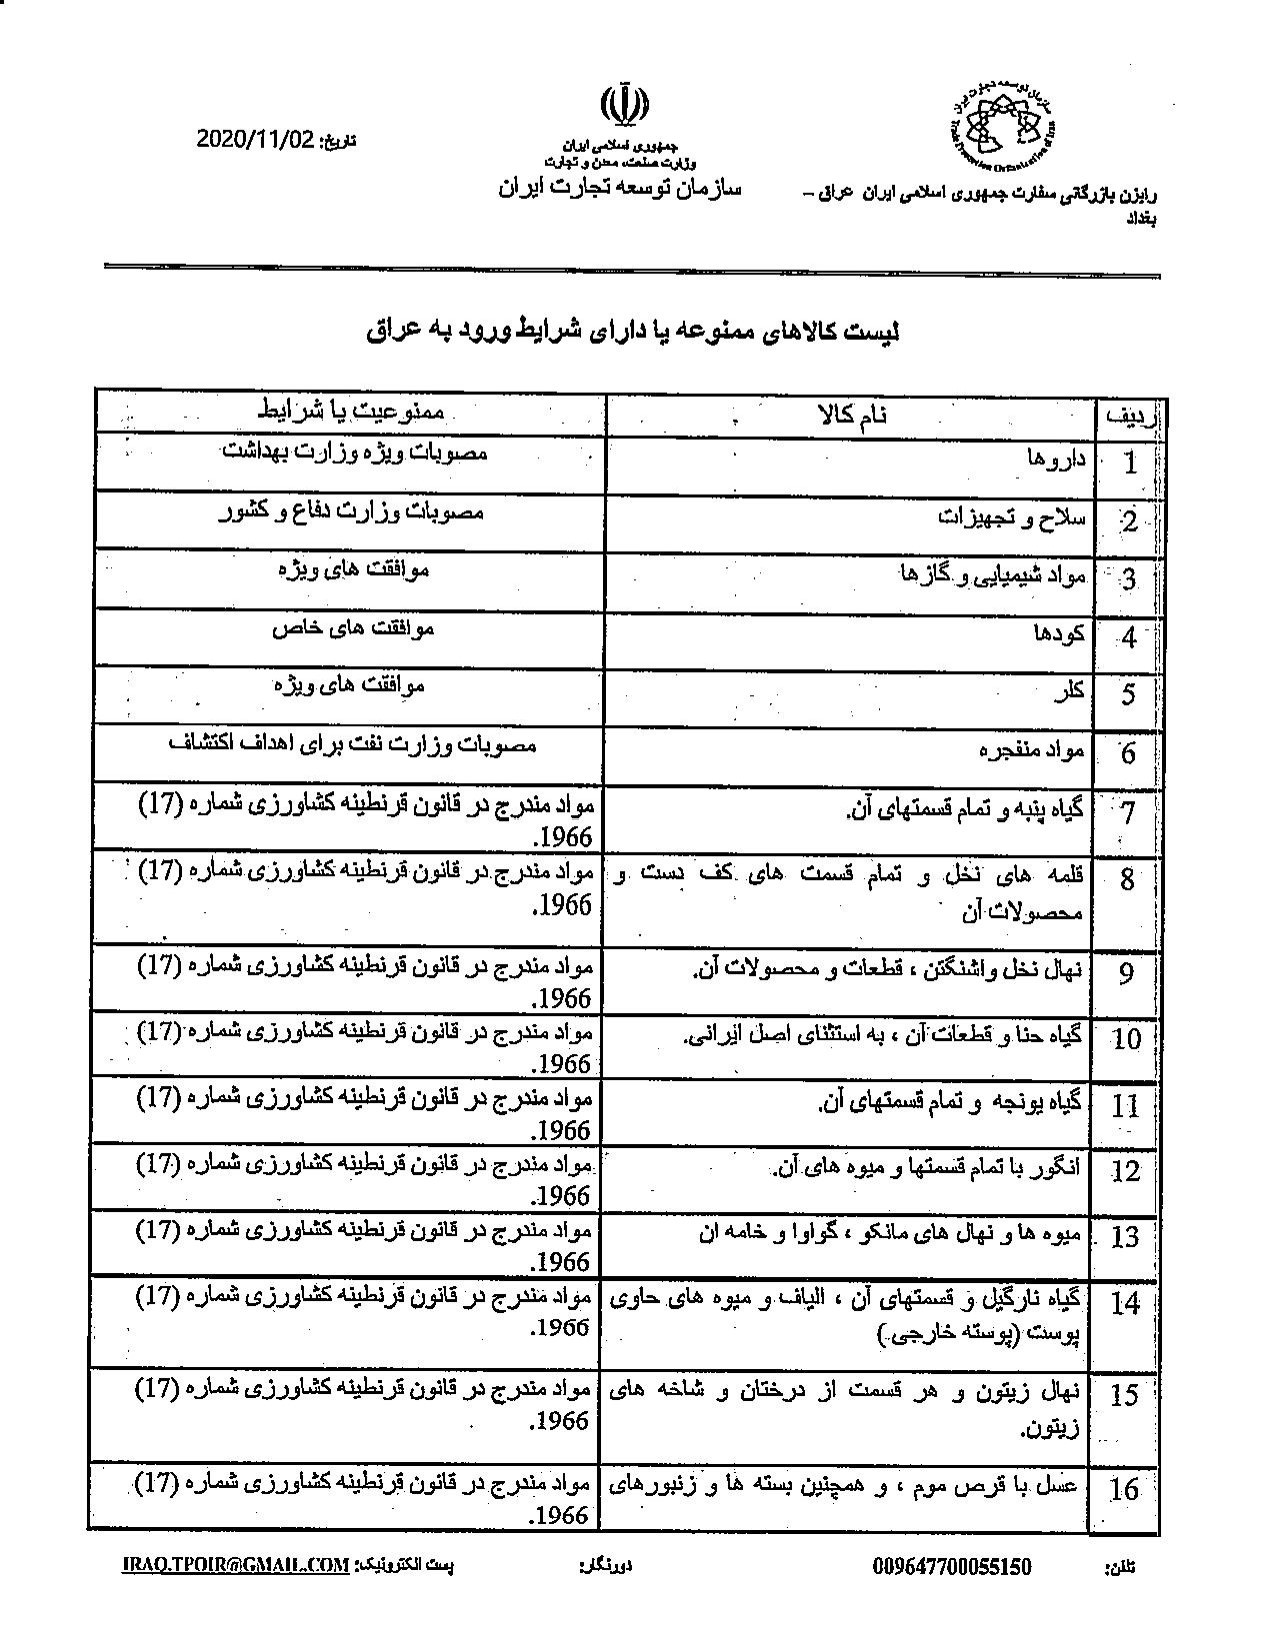 سازمان توسعه تجارت ایران
Trade Promotion Organization of Iran
جمهوری اسلامی ایران
وزارت صنعت، معدن و تجارت
سازمان توسعه تجارت ایران
تاریخ: 2020/11/02
رایزن بازرگانی سفارت جمهوری اسلامی ایران عراق –
بغداد
لیست کالاهای ممنوعه یا دارای شرایط ورود به عراق
ردیف نام کالا ممنوعیت یا شرایط
1 داروها مصوبات ویژه وزارت بهداشت
2 سلاح و تجهیزات مصوبات وزارت دفاع و کشور
3 مواد شیمیایی و گازها موافقت های ویژه
4 کودها موافقت های خاص
5 کلر موافقت های ویژه
6 مواد منفجره مصوبات وزارت نفت برای اهداف اکتشاف
7 گیاه پنبه و تمام قسمتهای آن. مواد مندرج در قانون قرنطینه کشاورزی شماره (17)
1966.
8 قلمه های نخل و تمام قسمت های کف دست و مواد مندرج در قانون قرنطینه کشاورزی شماره (17)
محصولات آن 1966.
9 نهال نخل واشنگتن ، قطعات و محصولات آن. مواد مندرج در قانون قرنطینه کشاورزی شماره (17)
1966.
10 گیاه حنا و قطعات آن ، به استثنای اصل ایرانی. مواد مندرج در قانون قرنطینه کشاورزی شماره (17)
1966.
11 گیاه یونجه و تمام قسمتهای آن. مواد مندرج در قانون قرنطینه کشاورزی شماره (17)
1966.
12 انگور با تمام قسمتها و میوه های آن. مواد مندرج در قانون قرنطینه کشاورزی شماره (17)
1966.
13 میوه ها و نهال های مانکو ، گواوا و خامه ان مواد مندرج در قانون قرنطینه کشاورزی شماره (17)
1966.
14 گیاه نارگیل و قسمتهای آن ، الیاف و میوه های حاوی مواد مندرج در قانون قرنطینه کشاورزی شماره (17)
پوست (پوسته خارجی.) 1966.
15 نهال زیتون و هر قسمت از درختان و شاخه های مواد مندرج در قانون قرنطینه کشاورزی شماره (17)
زیتون. 1966.
16 عسل با قرص موم ، و همچنین بسته ها و زنبورهای مواد مندرج در قانون قرنطینه کشاورزی شماره (17)
1966.
تلفن: 009647700055150 دورنگار: پست الکترونیک: IRAQ.TPOIR@GMAIL.COM